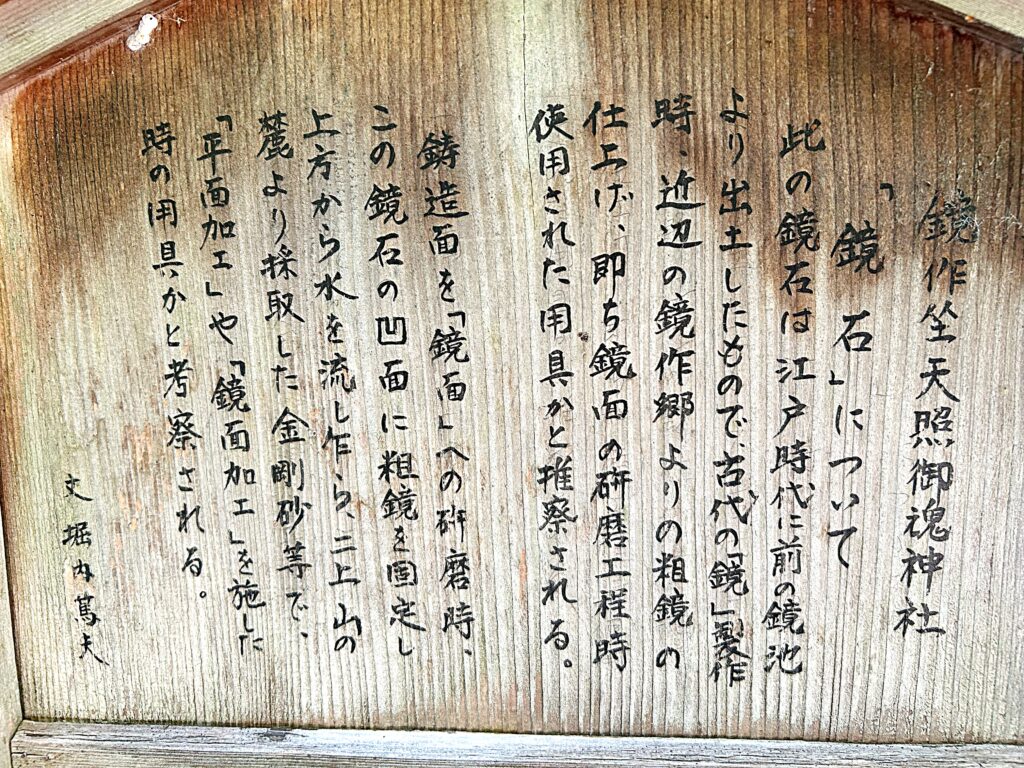 鏡作坐天照御魂神社
「鏡石」について
此の鏡石は江戸時代に前の鏡池
より出土したもので、古代の「鏡」製作
時、近辺の鏡作郷よりの粗鏡の
仕上げ、即ち鏡面の研磨工程時
使用された用具かと推察される。
鋳造面を「鏡面」への研磨時、
この鏡石の凹面に粗鏡を固定し
上方から水を流し乍ら、二上山の
麓より採取した金剛砂等で、
「平面加工」や「鏡面加工」を施した
時の用具かと考察される。
文 堀内篤夫